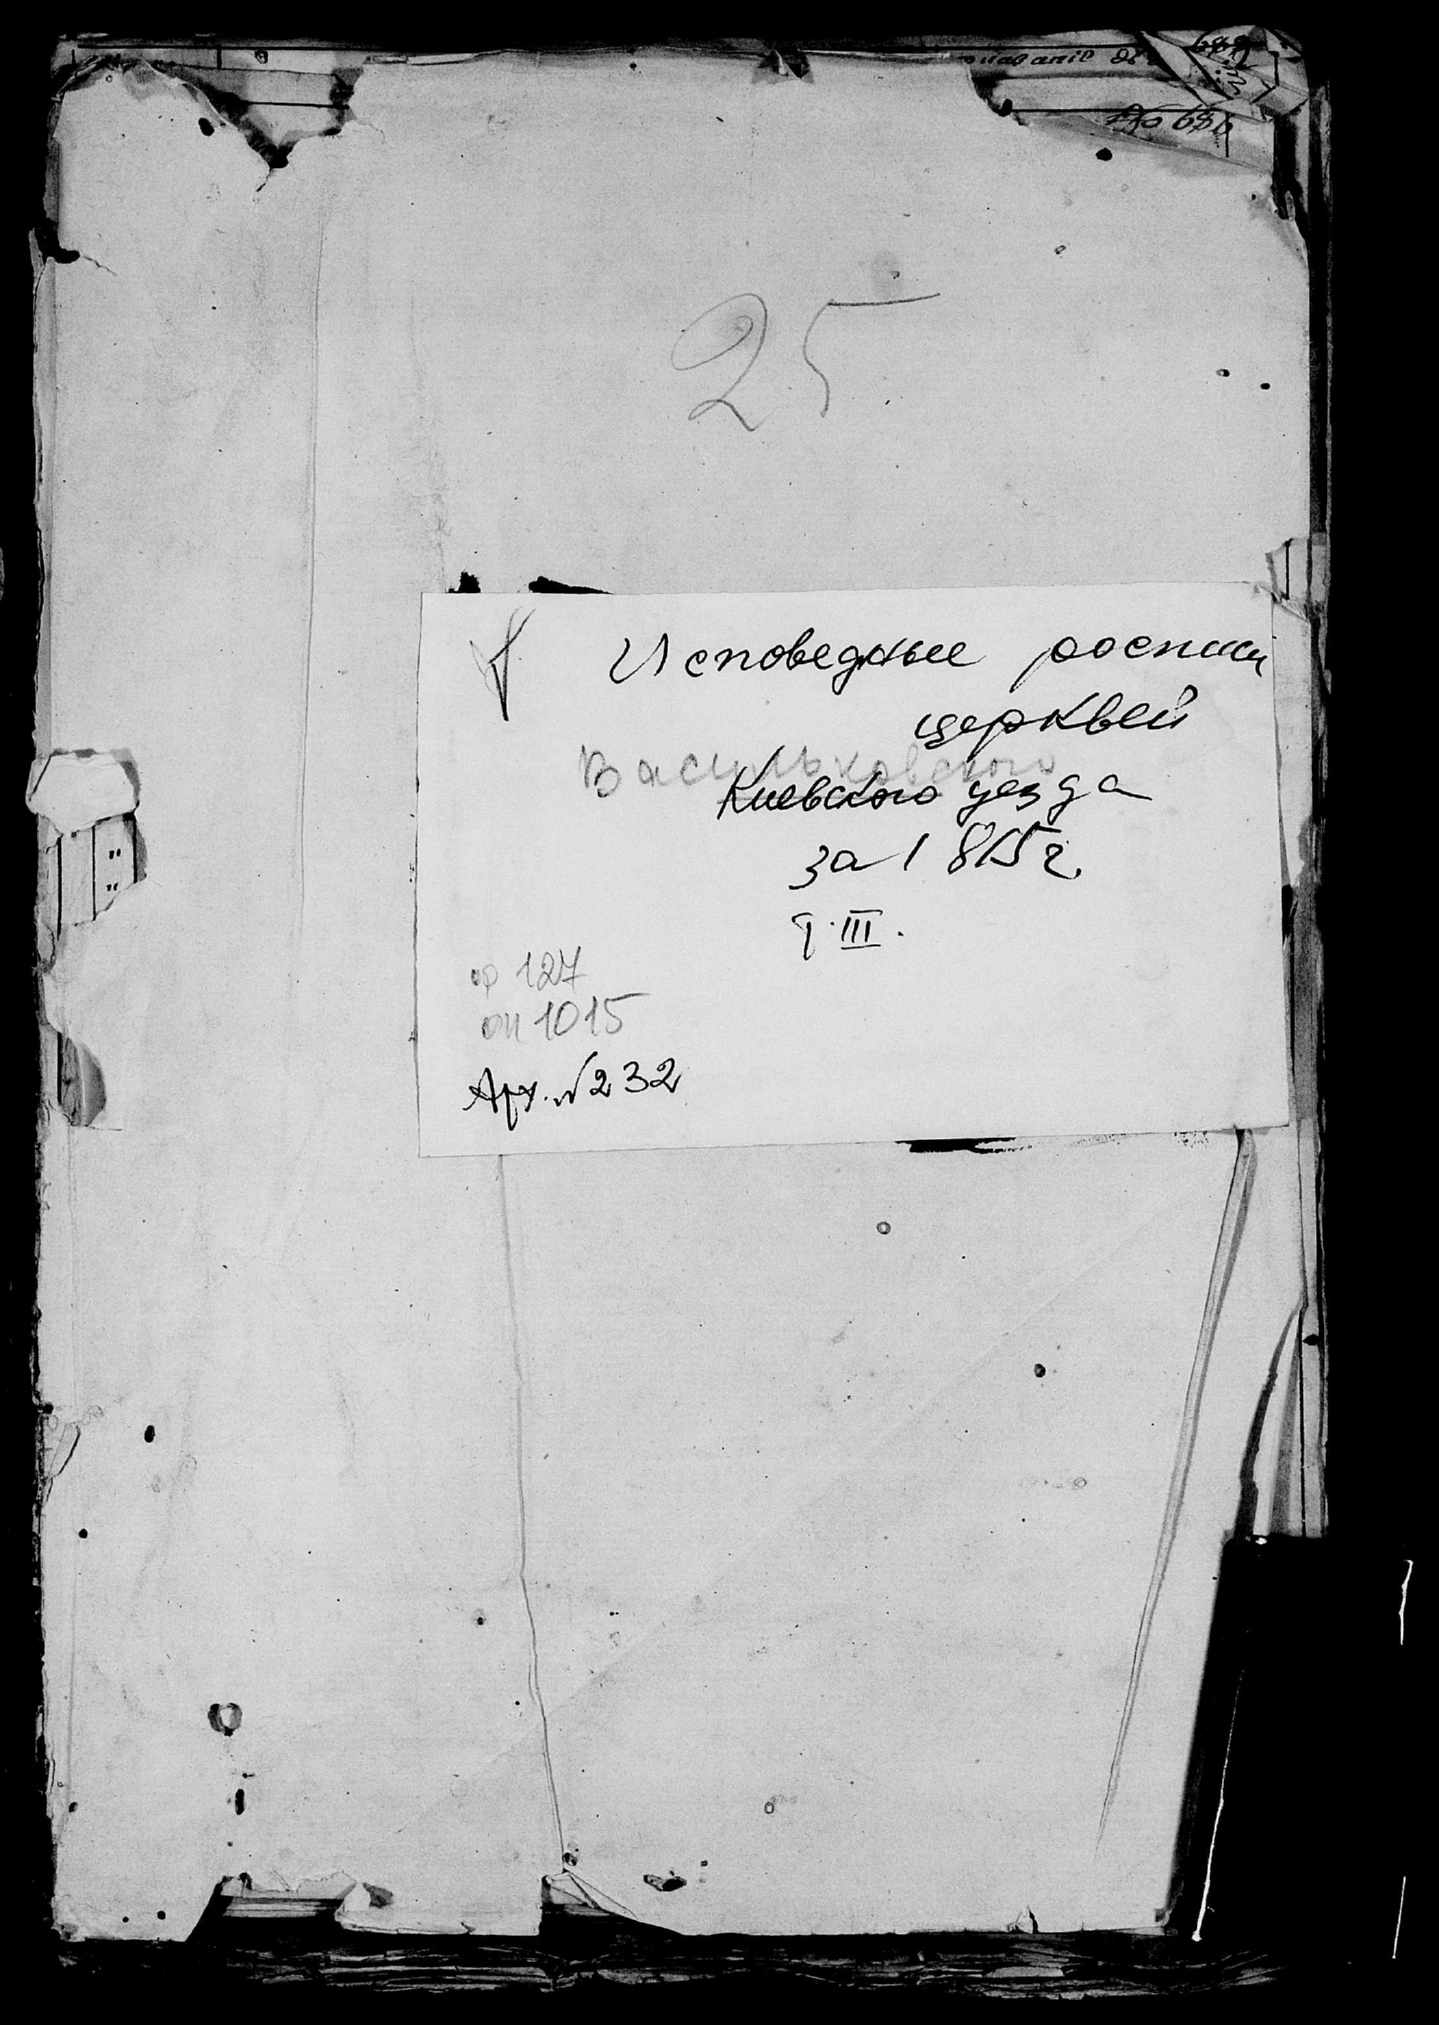 686
25
Исповедные росписи
церквей
Васильковского
Киевского уезда
за 1815 г.
Ч. III.
ф 127
оп 1015
Арх. № 232